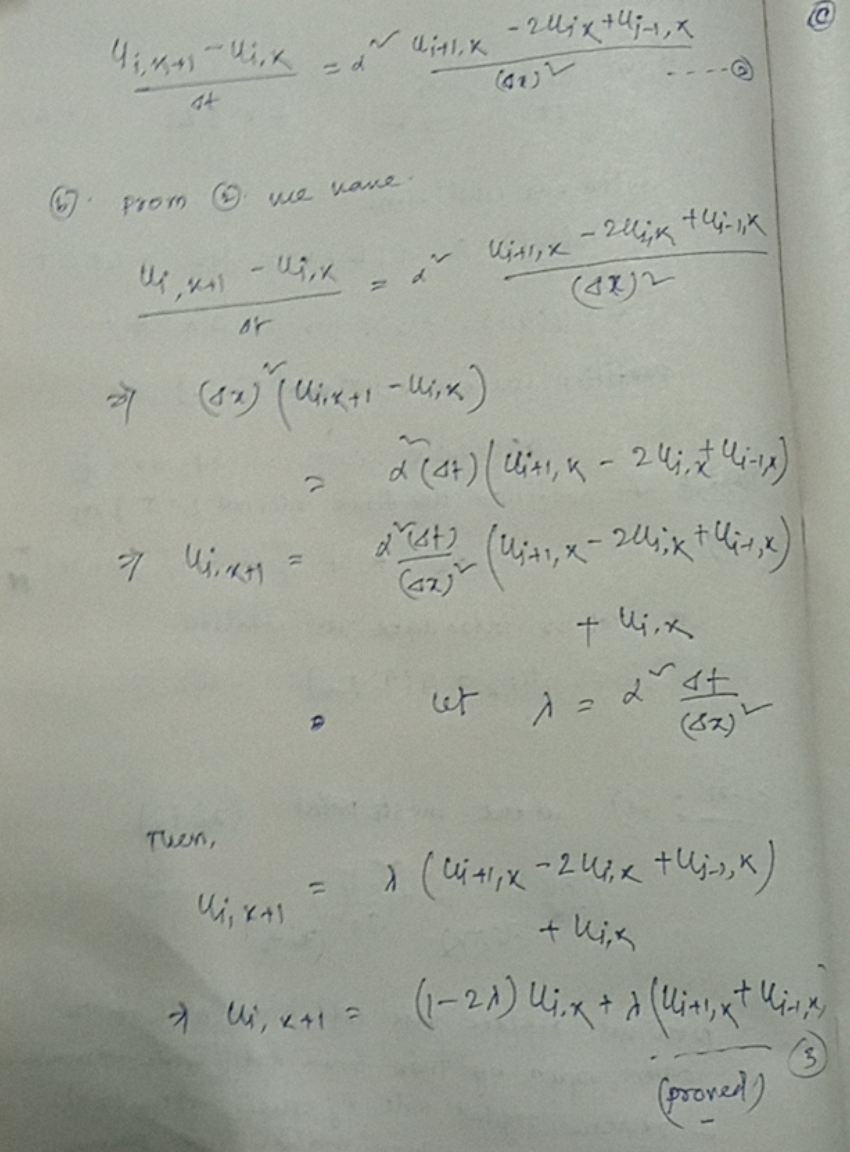 ©
(u_{i,k+1} - u_{i,k}) / Δt = α² (u_{i+1,k} - 2u_{i,k} + u_{i-1,k}) / (Δx)² ----②
ⓑ. From ② we have.
(u_{i,k+1} - u_{i,k}) / Δt = α² (u_{i+1,k} - 2u_{i,k} + u_{i-1,k}) / (Δx)²
⇒ (Δx)² (u_{i,k+1} - u_{i,k})
= α² (Δt) (u_{i+1,k} - 2u_{i,k} + u_{i-1,k})
⇒ u_{i,k+1} = α²(Δt) / (Δx)² (u_{i+1,k} - 2u_{i,k} + u_{i-1,k})
+ u_{i,k}
Let λ = α² Δt / (Δx)²
Then,
u_{i,k+1} = λ (u_{i+1,k} - 2u_{i,k} + u_{i-1,k})
+ u_{i,k}
⇒ u_{i,k+1} = (1-2λ) u_{i,k} + λ (u_{i+1,k} + u_{i-1,k})
③
(proved)